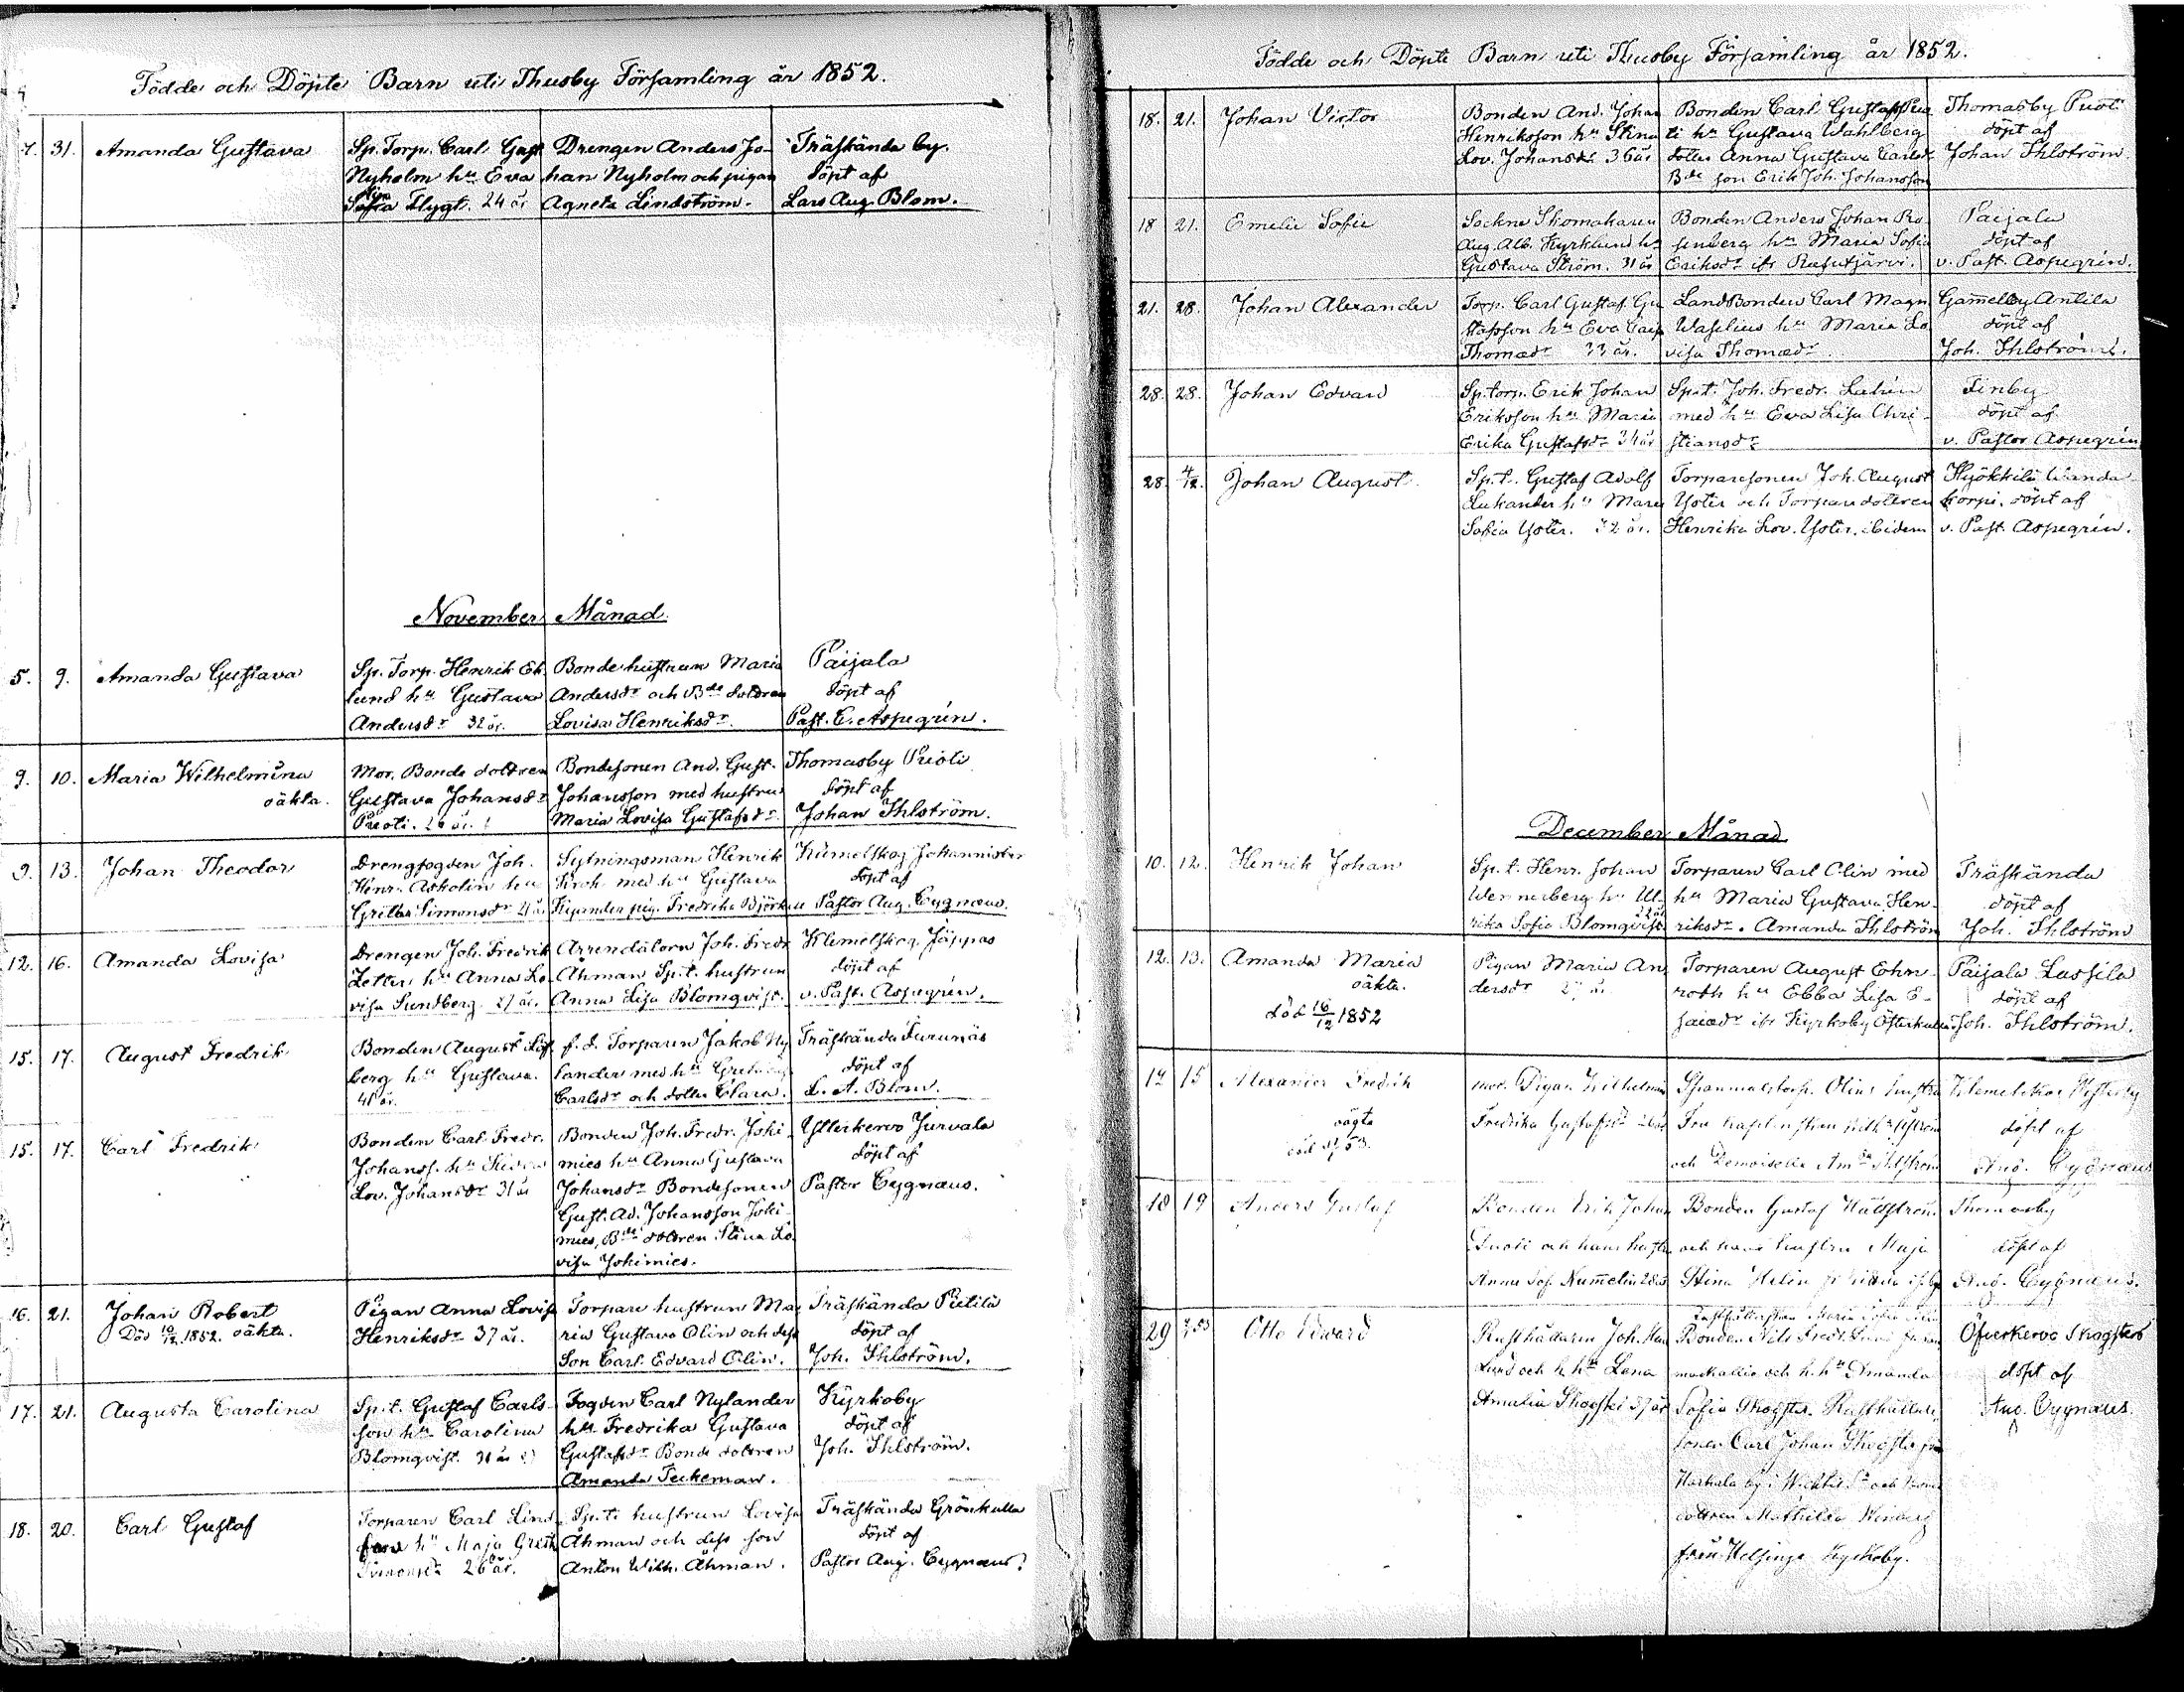 Födde och Döpte Barn uti Thusby Församling år 1852.
7. 31. Amanda Gustava
Sp. Torp. Carl Gust.
Nyholm hu Eva
Sofia Flygt. 24 år
Drengen Anders Jo-
han Nyholm och pigan
Agneta Lindström.
Träskända by.
döpt af
Lars Aug. Blom.
November Månad.
5. 9. Amanda Gustava
Sp. Torp. Henrik Ek
lund hu Gustava
Andersdr 32 år.
Bondehustrun Maria
Andersdr och Bde dottren
Lovisa Henriksdr.
Paijala
döpt af
Past. E. Aspegrén.
9. 10. Maria Wilhelmina
oäkta.
Mor. Bonde dottren
Gustava Johansdr
Puoti.
Bondesonen And. Gust.
Johansson med hustru
Maria Lovisa Gustafsdr.
Thomasby Puoti
döpt af
Johan Ihlström.
9. 13. Johan Theodor
Drengfogden Joh.
Henr. Askolin hu
Greta Simonsdr 21 år
Sytningsman Henrik
med hu Gustava
pig. Fredrika Björkn
Klemetskog Johannisber
döpt af
Pastor Aug. Cygnæus.
12. 16. Amanda Lovisa
Drengen Joh. Fredrik
Zetter hu Anna Lo-
visa Sundberg 27 år.
Arrendatorn Joh. Fredr.
Åhman Sp.t. hustrun
Anna Lisa Blomqvist.
Klemetskog Jäppas
döpt af
v. Past. Aspegrén.
15. 17. August Fredrik
Bonden August Löf
berg hu Gustava.
41 år.
f.d. Torparen Jakob Ny
lander med hu Greta
Carlsdr och dotter Clara.
Träskända Furunäs
döpt af
L. A. Blom.
15. 17. Carl Fredrik
Bonden Carl Fredr.
Johanss. hu
Lov. Johansdr 31 år
Bonden Joh. Fredr. Joki-
mies hu Anna Gustava
Johansdr Bondesonen
Gust. Ad. Johansson Joki-
mies, Bde dottren Stina Lo
visa Jokimies.
Ytterkervo Jurvala
döpt af
Pastor Cygnæus.
16. 21. Johan Robert
Död 10/12 1852. oäkta.
Pigan Anna Lovisa
Henriksdr 37 år.
Torpare hustrun Ma
ria Gustava Olin och dess
Son Carl Edvard Olin.
Träskända Pietilä
döpt af
Joh. Ihlström.
17. 21. Augusta Carolina
Sp.t. Gustaf Carls-
son hu Carolina
Blomqvist. 31 år
Fogden Carl Nylander
hu Fredrika Gustava
Gustafsdr Bonde dottren
Amanda Teckeman.
Kyrkoby
döpt af
Joh. Ihlström.
18. 20. Carl Gustaf
Torparen Carl Lind
fors hu Maja Greta
Simonsdr 26 år.
Sp.t. hustrun Lovisa
Åhman och dess son
Anton Wilh. Åhman.
Träskända Grönkulla
döpt af
Pastor Aug. Cygnæus.
Födde och Döpte Barn uti Thusby Församling år 1852.
18. 21. Johan Victor
Bonden And. Johan
Henriksson hu Stina
Lov. Johansdr 36 år
Bonden Carl Gustafss Puo
ti hu Gustava Wahlberg
dotter Anna Gustava Carlsdr
Bde son Erik Joh. Johansson
Thomasby Puoti
döpt af
Johan Ihlström
18 21. Emelie Sofie
Sockne Skomakaren
Aug. Alb. Kyrklund hu
Gustava Ström. 31 år
Bonden Anders Johan Ro-
senberg hu Maria Sofia
Eriksdr ifr Rusutjärvi.
Paijala
döpt af
v. Past. Aspegrén.
21. 28. Johan Alexander
Torp. Carl Gustaf Gu
stafsson hu Eva Caisa
Thomasdr 33 år.
LandBonden Carl Magn.
Waselius hu Maria Lo
visa Thomasdr
Gammelby Antila
döpt af
Joh. Ihlström.
28. 28. Johan Edvard
Sp. torp. Erik Johan
Eriksson hu Maria
Erika Gustafsdr 34 år
Sp.t. Joh. Fredr. Lehén
med hu Eva Lisa Chri-
stiansdr
Finby
döpt af
v. Pastor Aspegrén
28. 4/12. Johan August
Sp.t. Gustaf Adolf
Lukander hu Maria
Sofia Yster. 32 år.
Torparesonen Joh. August
Yster och Torpare dottren
Henrika Lov. Yster. ibidem
Hyökkilä Wanda
korpi. döpt af
v. Past. Aspegrén.
December Månad
10. 12. Henrik Johan
Sp.t. Henr. Johan
Wernerberg hu Ul-
rika Sofia Blomqvist
Torparen Carl Olin med
hu Maria Gustava Hen-
riksdr. Amanda Ihlström
Träskända
döpt af
Joh. Ihlström
12. 13. Amanda Maria
oäkta.
död 16/12 1852
Pigan Maria An
dersdr
Torparen August Ehn-
roth hu Ebba Lisa E-
saiædr ifr Kyrkoby Österkulla
Paijala Lassila
döpt af
Joh. Ihlström.
14 15 Alexander Fredrik
oägta
mod. Pigan Wilhelmina
Fredrika Gustafsdr
Spannmålstorp. Olins hustru
och Demoiselle
Klemetskog
döpt af
Aug. Cygnæus
18 19 Anders Gustaf
Bonden Erik Johan
Puoti och hans hustru
Anna Sof. Nummelin 28 år
Bonden Gustaf Hällström
och hans hustru Maja
Stina Helin
Thomasby
döpt af
Aug. Cygnæus.
29 Otto Edvard
Rusthållaren Joh.
Lund och h. hu Lena
Amalia Skogster 37 år
Bonden Nils Fredr.
mackallio och h. hu Amanda
Sofia Skogster. Rusthållare
sonen Carl Johan Skogster från
Haskala by i Wichtis Sn och Bonde
dottren Mathilda Kinberg
från Helsinge Kyrkoby.
Öfverkervo Skogster
döpt af
Aug. Cygnæus